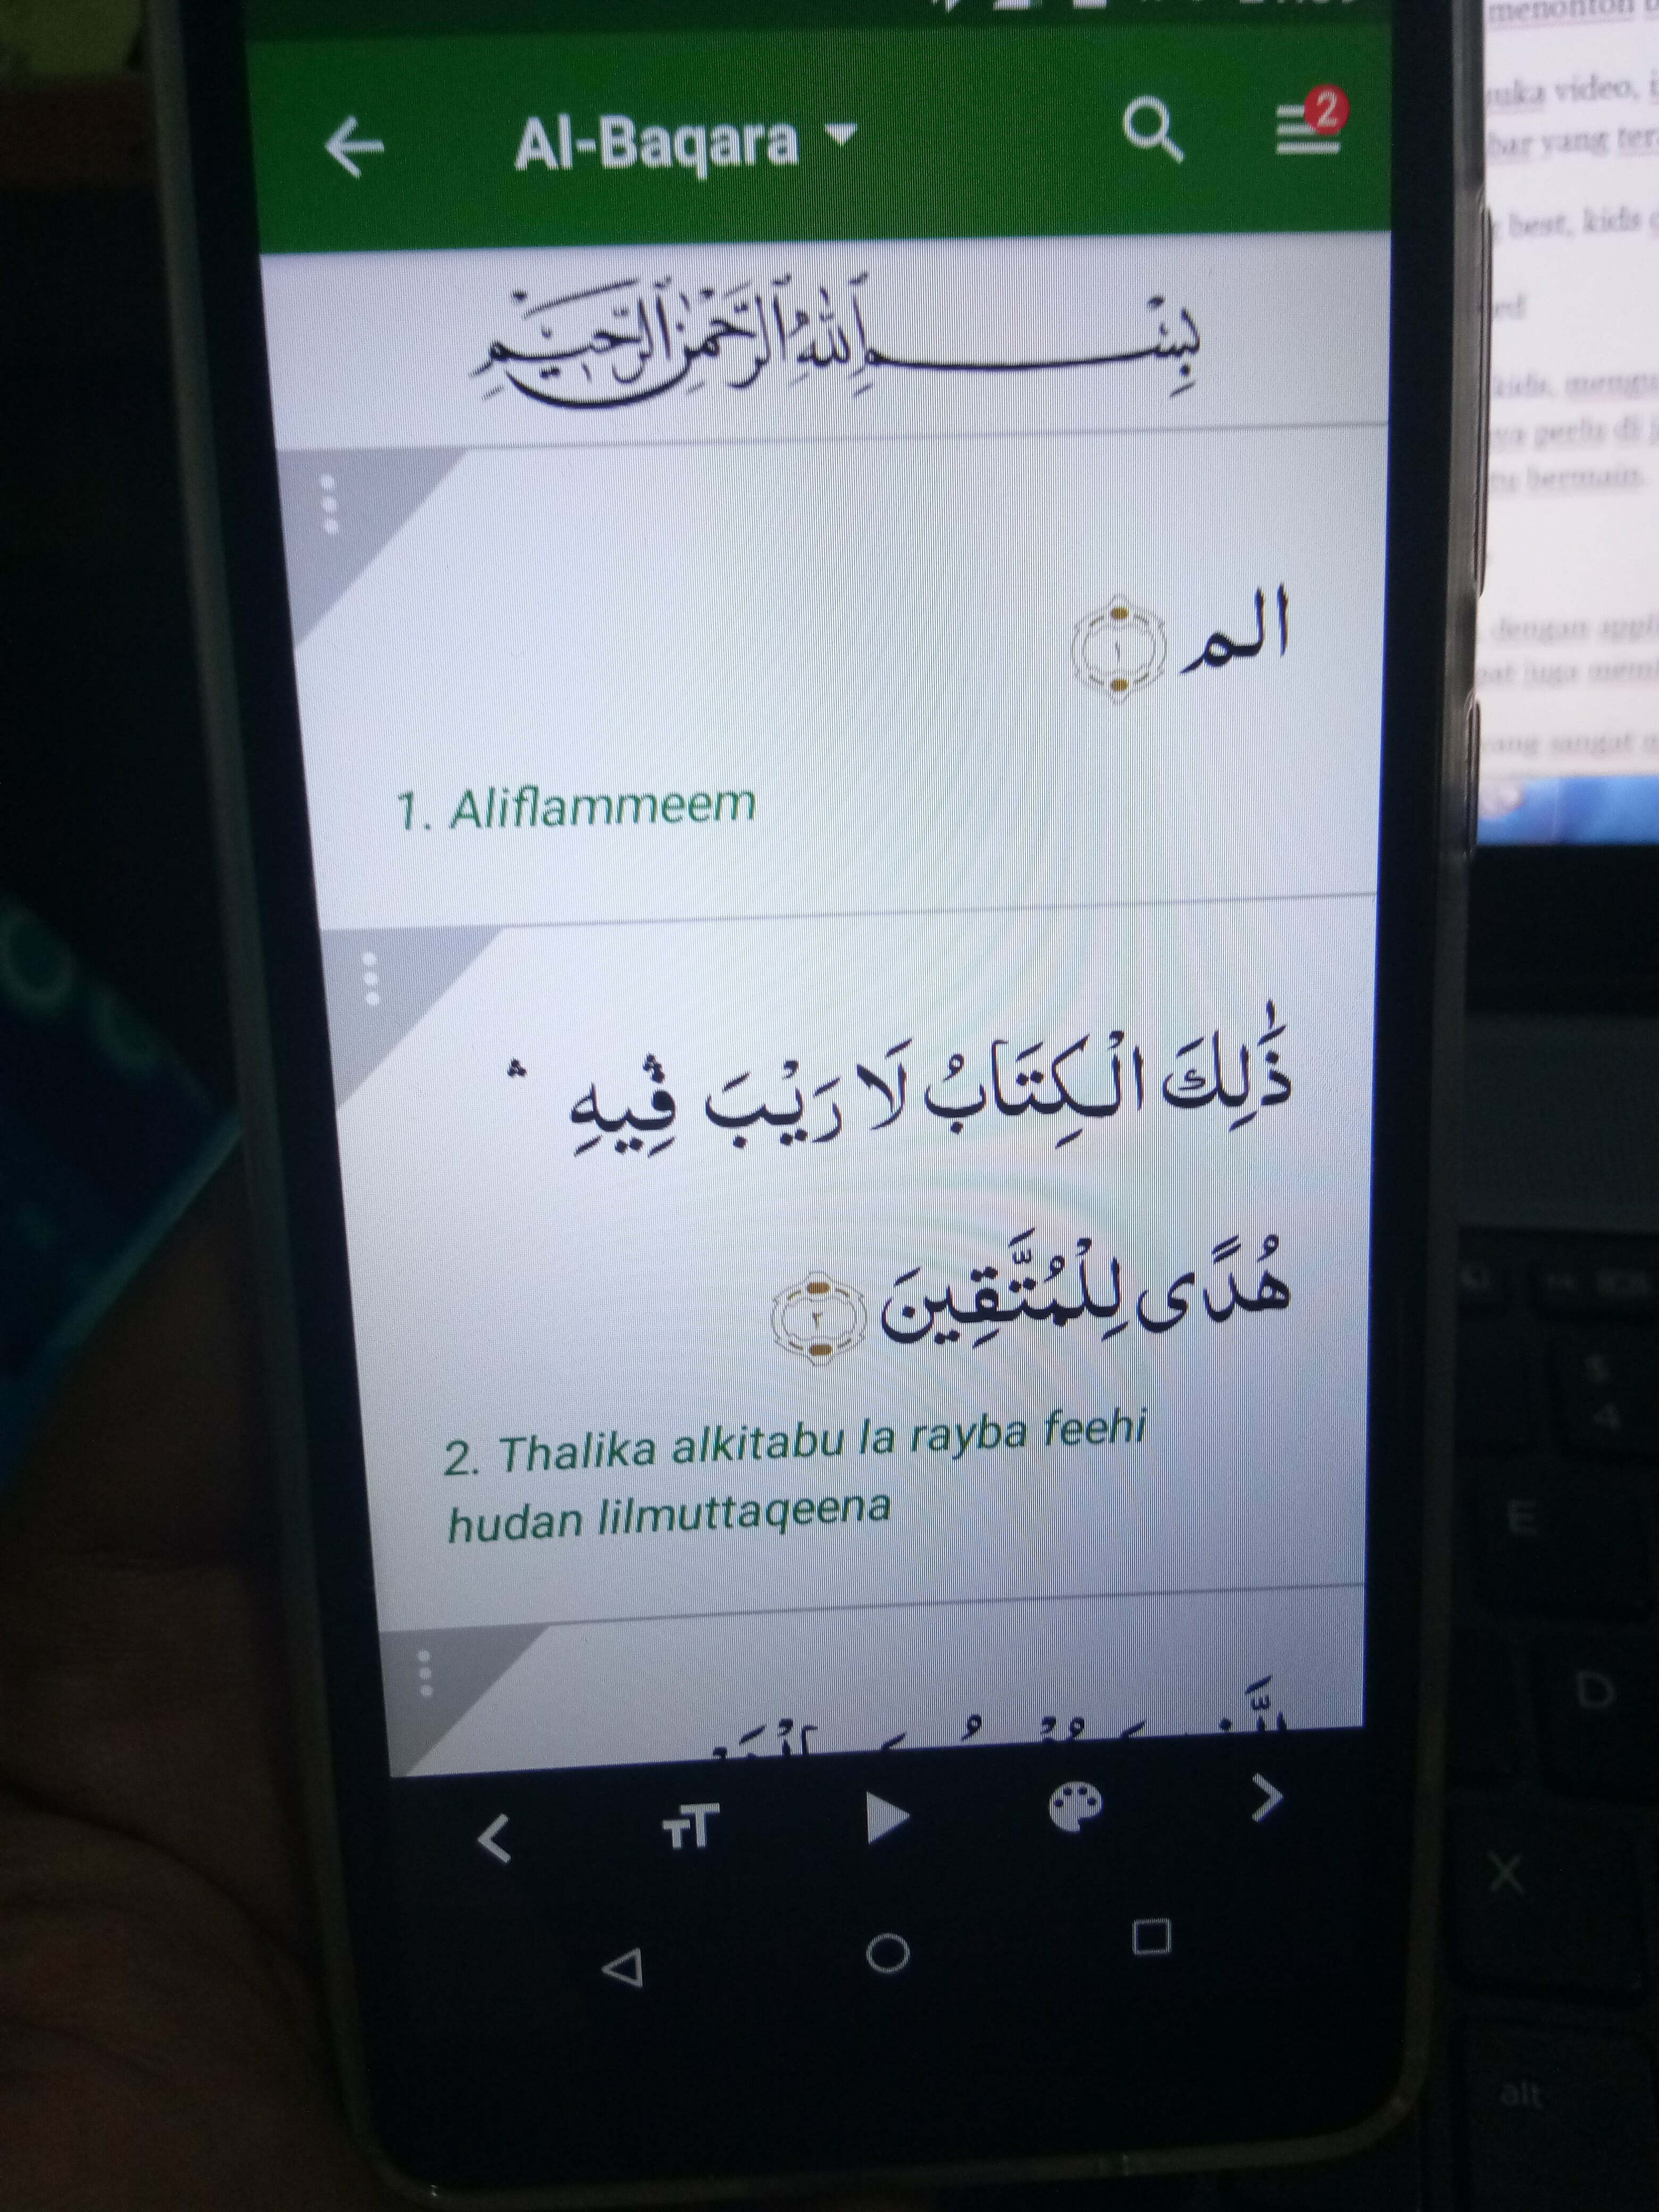 Al-Baqara
2
بِسْمِ ٱللَّهِ ٱلرَّحْمَٰنِ ٱلرَّحِيمِ
الم ١
1. Aliflammeem
ذَٰلِكَ الْكِتَابُ لَا رَيْبَ ۛ فِيهِ ۛ
هُدًى لِلْمُتَّقِينَ ٢
2. Thalika alkitabu la rayba feehi
hudan lilmuttaqeena
TT
menonton
video, i
bar yang
best, kids
kids,
perlu di
bermain.
dengan
juga
sangat
4
E
D
X
alt